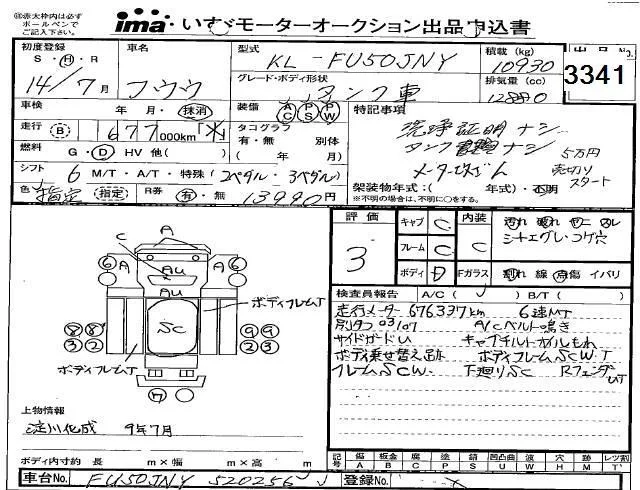 ㊟赤太枠内は必ず
ボールペンで
ご記入下さい。
ima いすゞモーターオークション出品申込書
初度登録 車名 型式 積載 (kg) 出品No.
S・H・R KL - FU50JNY 10930
14年/7月 フソウ グレード・ボディ形状 排気量 (cc) 3341
タンク車 12880
車検 年・月・抹消 装備 AC PS PW 特記事項
走行 B 677,000km タコグラフ 洗浄証明ナシ
有・無 別体 タンク 書類ナシ 5万円
燃料 G・D HV 他( ) ( 年 月) メーター改ざん 売切り
スタート
シフト 6 M/T・A/T・特殊(2ペダル・3ペダル) 架装物年式( 年式)・不明
※不明の場合は、不明に○をする。
色 指定 (指定) R券 有・無 13990円
評価 3 キャブ C 内装 C
フレーム C
ボディ D Fガラス 割れ 線 点傷 イバリ
シートスレ・コゲ穴
検査員報告 A/C( ) B/T( )
走行メーター 676337km 6速MT
A/Cベルト鳴き
サイドガードU キャブチルトオイルもれ
ボディ乗せ替え跡 ボディフレームSCW.T
フレームSCW. 下廻りSC RフェンダーUT
A
C A A
A AU
6 6
AU
ボディフレームT
SC
8 8 9 9
3 2 3 2
ボディフレームT
7
上物情報
淀川化成 9年7月
ボディ内寸約 長 m×幅 m×高 m
記号 傷 板金 腐 塗 錆 凹凸曲 波 穴 跡 レツ割
A B C P S U W H M T
車台No. FU50JNY 520256 登録No.